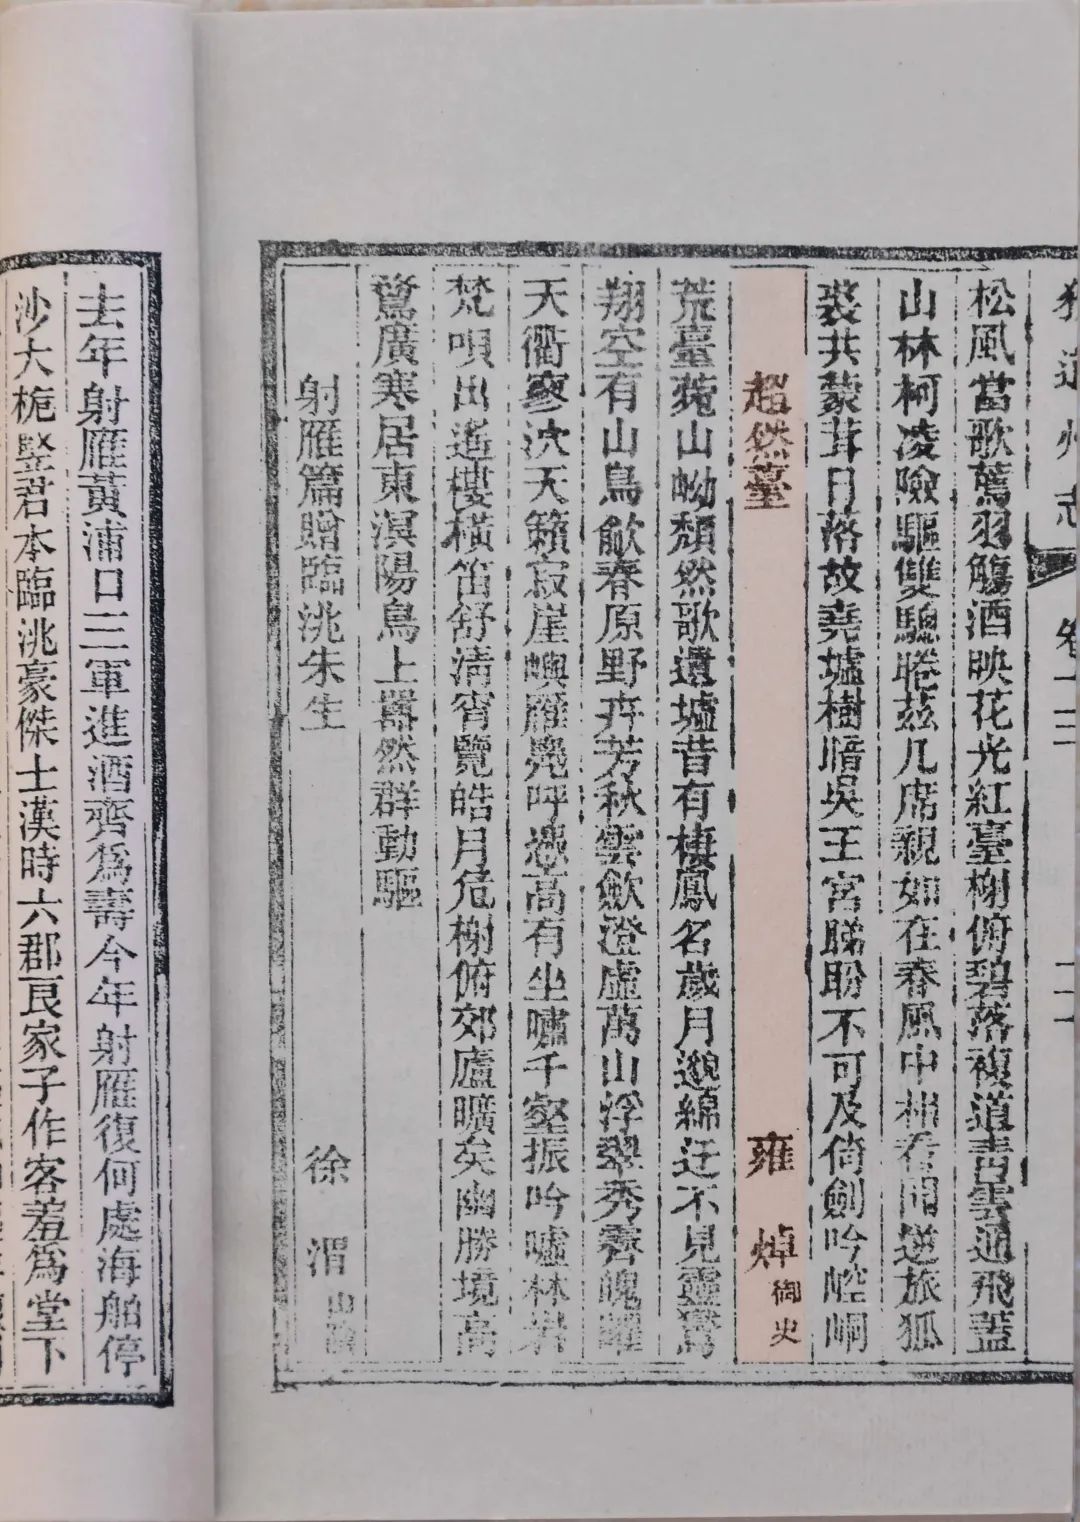 狄道州志 卷十二 二十
松風當歌薦羽觴酒映花光紅臺榭俯碧落複道青雲通飛蓋
山林柯凌險驅雙驄睠茲几席親如在春風中相看同逆旅狐
裘共蒙茸日落故堯墟樹暗吳王宮睇盼不可及倚劍吟崆峒
超然臺 雍焯 御史
荒臺菀山岰頹然歌遺墟昔有棲鳳名歲月邈綿迂不見靈鷟
翔空有山鳥歈春原野卉芳秋雲斂澄虛萬山浮翠秀霽魄
天衢寥泬天籟寂崖嶼雁凫呼憑高有坐嘯千壑振吟噓林
梵唄出遙樓橫笛舒清宵覽皓月危榭俯郊廬曠矣幽勝境高
驚廣寒居東溟陽鳥上囂然群動驅
射雁篇贈臨洮朱生 徐渭 山陰
去年射雁黃浦口三軍進酒齊為壽今年射雁復何處海舶停
沙大桅竪君本臨洮豪傑士漢時六郡良家子作客羞為堂下